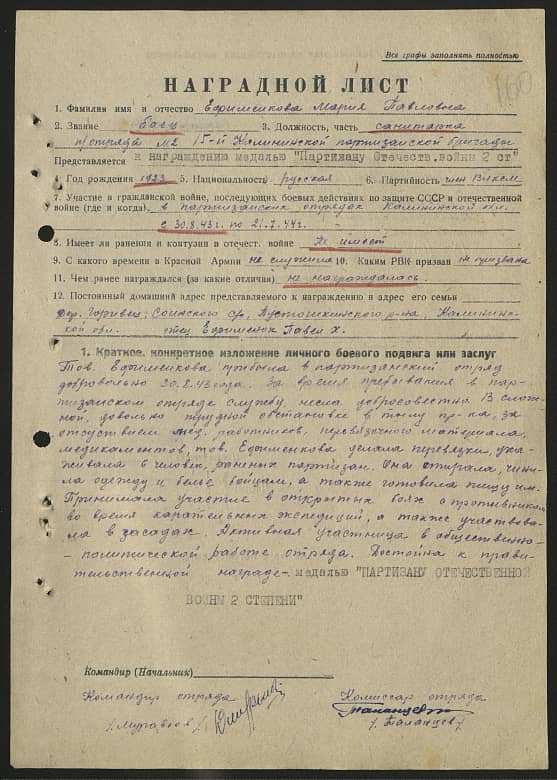 Все графы заполнять полностью
160
НАГРАДНОЙ ЛИСТ
1. Фамилия имя и отчество Ефименкова Мария Павловна
2. Звание боец 3. Должность, часть санитарка
отряда №2 15-й Калининской партизанской бригады
Представляется к награждению медалью "Партизану Отечеств.войны 2 ст"
4. Год рождения 1923 5. Национальность русская 6. Партийность член ВЛКСМ
7. Участие в гражданской войне, последующих боевых действиях по защите СССР и отечественной
войне (где и когда) в партизанских отрядах Калининской обл.
с 30.8.43 г. по 21.7.44 г.
8. Имеет ли ранения и контузии в отечест. войне Не имеет
9. С какого времени в Красной Армии не служила 10. Каким РВК призван не призвана
11. Чем ранее награждался (за какие отличия) не награждалась.
12. Постоянный домашний адрес представляемого к награждению и адрес его семьи
дер. Горивец, Соинского с/с, Пустошкинского р-на, Калинин-
ской обл. отец Ефименок Павел Х.
1. Краткое, конкретное изложение личного боевого подвига или заслуг
Тов. Ефименкова прибыла в партизанский отряд
добровольно 30.8.43 года. За время пребывания в пар-
тизанском отряде службу несла добросовестно. В слож-
ной, довольно трудной обстановке в тылу пр-ка, за
отсутствием мед. работников, перевязочного материала,
медикаментов, тов. Ефименкова делала перевязки, уха-
живала 6 человек раненых партизан. Она стирала, чини-
ла одежду и белье бойцам, а также готовила пищу им.
Принимала участие в открытых боях с противником
во время карательных экспедиций, а также участвова-
ла в засадах. Активная участница в общественно-
-политической работе отряда. Достойна к прави-
тельственной награде- медалью "ПАРТИЗАНУ ОТЕЧЕСТВЕННОЙ
ВОЙНЫ 2 СТЕПЕНИ"
Командир (Начальник)
Командир отряда Комиссар отряда
/Муравьев/ /Таланцев/